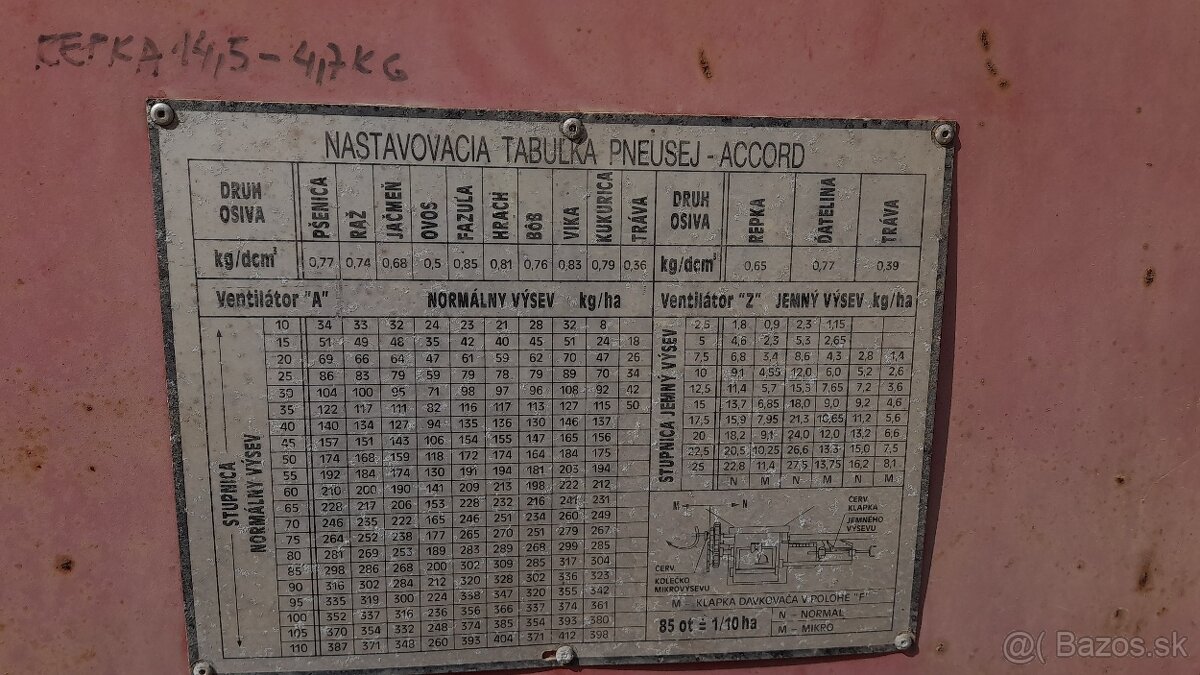 REPKA 14,5 - 4,7 KG
NASTAVOVACIA TABUĽKA PNEUSEJ - ACCORD
DRUH OSIVA PŠENICA RAŽ JAČMEŇ OVOS FAZUĽA HRACH BÔB VIKA KUKURICA TRÁVA DRUH OSIVA REPKA ĎATELINA TRÁVA
kg/dcm³ 0,77 0,74 0,68 0,5 0,85 0,81 0,76 0,83 0,79 0,36 kg/dcm³ 0,65 0,77 0,39
Ventilátor "A" NORMÁLNY VÝSEV kg/ha Ventilátor "Z" JEMNÝ VÝSEV kg/ha
STUPNICA NORMÁLNY VÝSEV
10 34 33 32 24 23 21 28 32 8
15 51 49 48 35 42 40 45 51 24 18
20 69 66 64 47 61 59 62 70 47 26
25 86 83 79 59 79 78 79 89 70 34
30 104 100 95 71 98 97 96 108 92 42
35 122 117 111 82 116 117 113 127 115 50
40 140 134 127 94 135 136 130 146 137
45 157 151 143 106 154 155 147 165 156
50 174 168 159 118 172 174 164 184 175
55 192 184 174 130 191 194 181 203 194
60 210 200 190 141 209 213 198 222 212
65 228 217 206 153 228 232 216 241 231
70 246 235 222 165 246 251 234 260 249
75 264 252 238 177 265 270 251 279 267
80 281 269 253 189 283 289 268 299 285
85 298 286 268 200 302 309 285 317 304
90 316 302 284 212 320 328 302 336 323
95 335 319 300 224 338 347 320 355 342
100 352 337 316 236 356 366 337 374 361
105 370 354 332 248 374 385 354 393 380
110 387 371 348 260 393 404 371 412 398
STUPNICA JEMNÝ VÝSEV
2,5 1,8 0,9 2,3 1,15
5 4,6 2,3 5,3 2,65
7,5 6,8 3,4 8,6 4,3 2,8 1,4
10 9,1 4,55 12,0 6,0 5,2 2,6
12,5 11,4 5,7 15,3 7,65 7,2 3,6
15 13,7 6,85 18,0 9,0 9,2 4,6
17,5 15,9 7,95 21,3 10,65 11,2 5,6
20 18,2 9,1 24,0 12,0 13,2 6,6
22,5 20,5 10,25 26,6 13,3 15,0 7,5
25 22,8 11,4 27,5 13,75 16,2 8,1
N M N M N M
M N
ČERV. KLAPKA
JEMNÉHO VÝSEVU
ČERV.
KOLEČKO
MIKROVÝSEVU
M – KLAPKA DÁVKOVAČA V POLOHE "F"
85 ot = 1/10 ha
N – NORMAL
M – MIKRO
@( Bazos.sk